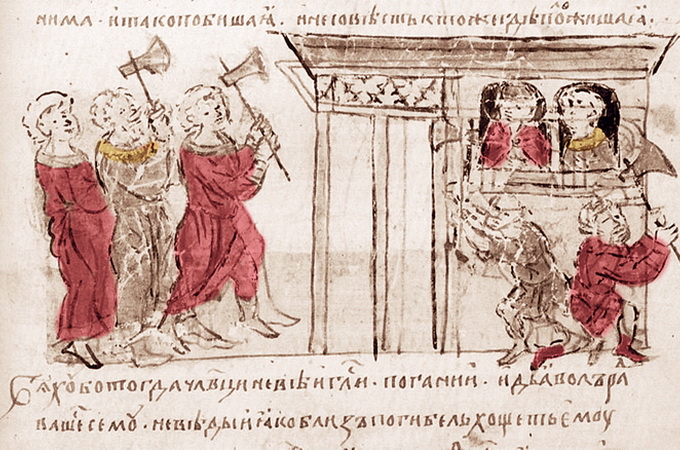 нима · и тако побиша ꙗ · и не совѣсть ктоже гдѣ положиша ꙗ ·
бѧхо бо тогда чл҃вци невѣигл҃си · погании · и дьꙗволъ ра
ваше семо · не вѣдыи ꙗко близъ погибель хощеть емоу